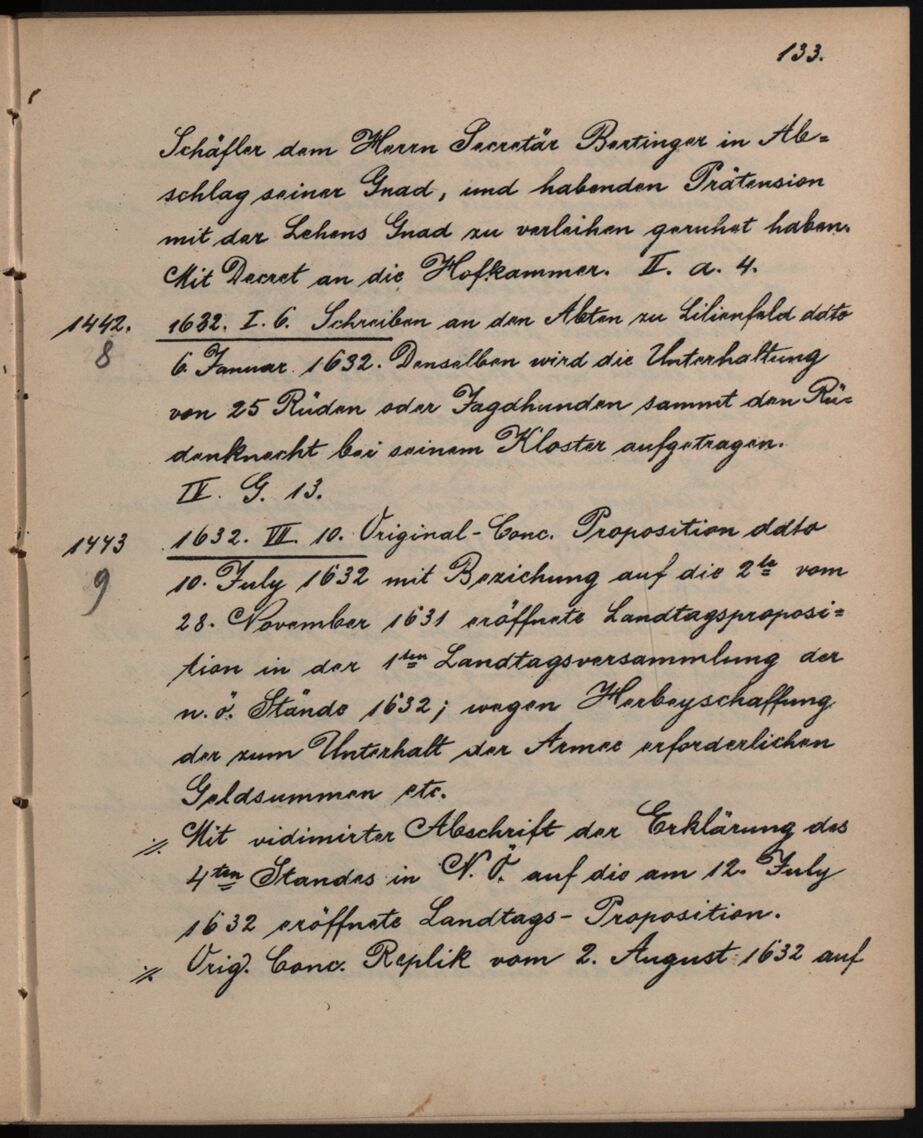 133.
Schäfler dem Herrn Secretär Bertinger in Ab=
schlag seiner Gnad, und habenden Prätension
mit der Lehens Gnad zu verleihen geruhet haben.
Mit Decret an die Hofkammer. II. a. 4.
1442. 1632. I. 6. Schreiben an den Abten zu Lilienfeld ddto
8 6. Januar 1632. Denselben wird die Unterhaltung
von 25 Rüden oder Jagdhunden sammt den Rü=
denknecht bei seinem Kloster aufgetragen.
IV. G. 13.
1443 1632. VII. 10. Original-Conc. Proposition ddto
9 10. July 1632 mit Beziehung auf die 2te vom
28. November 1631 eröffnete Landtagsproposi=
tion in der 1ten Landtagsversammlung der
n. ö. Stände 1632; wegen Herbeyschaffung
der zum Unterhalt der Armee erforderlichen
Geldsummen etc.
·/. Mit vidimirter Abschrift der Erklärung des
4ten Standes in N. Ö. auf die am 12. July
1632 eröffnete Landtags-Proposition.
·/. Orig. Conc. Replik vom 2. August 1632 auf